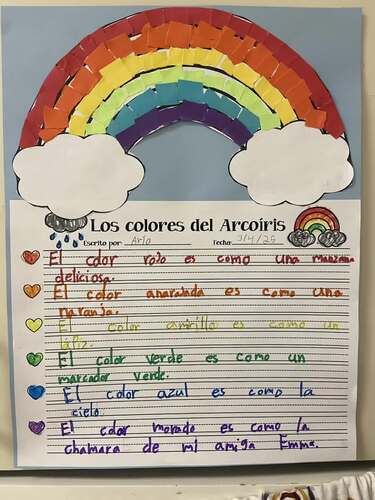 Los colores del Arcoíris
Escrito por: Arlo Fecha: 3/4/25
El color rojo es como una manzana
deliciosa.
El color anaranjda es como una
naranja.
El color amirillo es como un
lápiz.
El color verde es como un
marcador verde.
El color azul es como la
cielo.
El color morado es como la
chamara de mi amiga Emma.